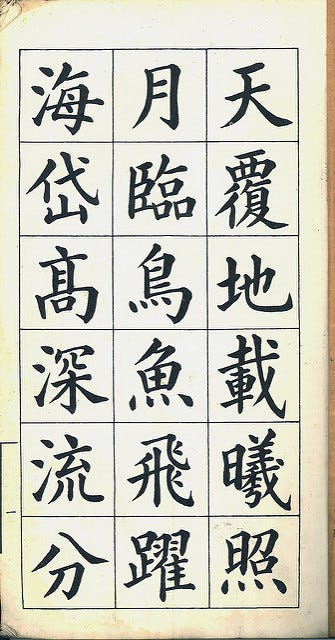 天覆地載曦照
月臨鳥魚飛躍
海岱髙深流分